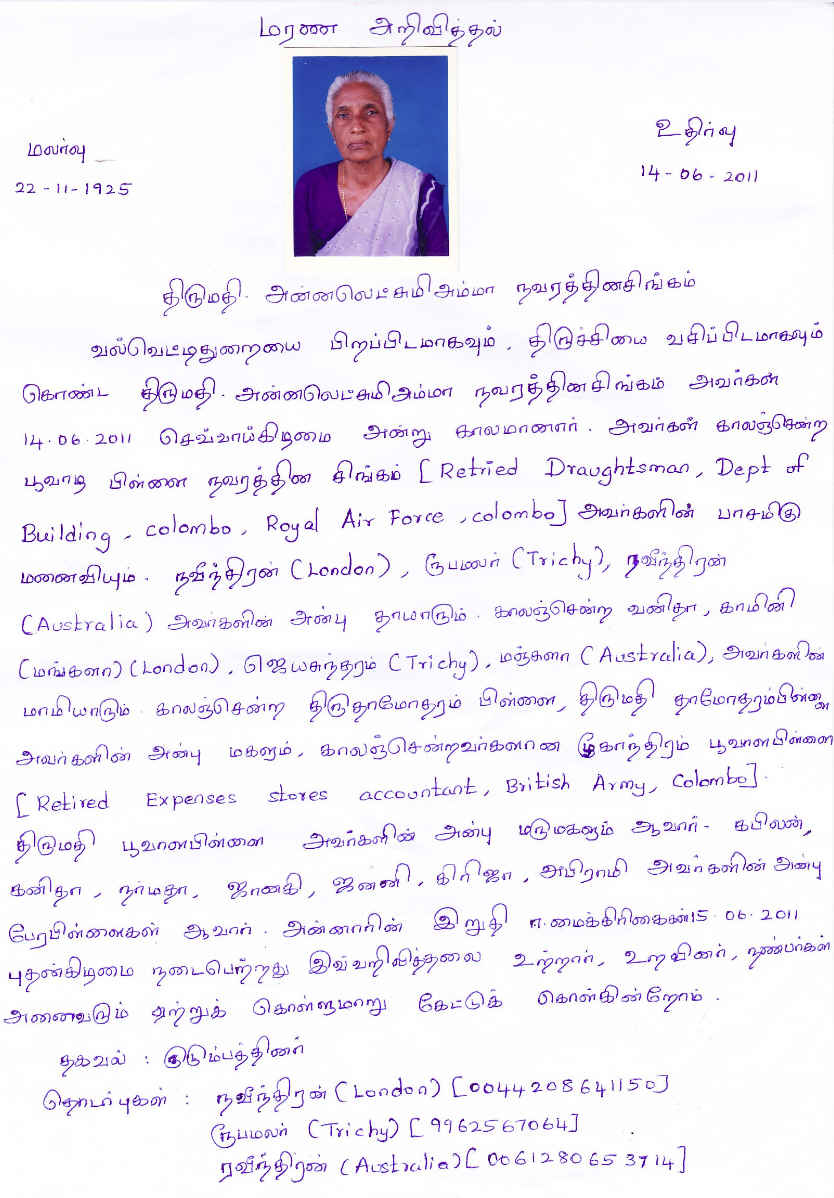 மரண அறிவித்தல்
மலர்வு
22-11-1925
உதிர்வு
14-06-2011
திருமதி. அன்னலெட்சுமிஅம்மா நவரத்தினசிங்கம்
வல்வெட்டிதுறையை பிறப்பிடமாகவும், திருச்சியை வசிப்பிடமாகவும்
கொண்ட திருமதி. அன்னலெட்சுமிஅம்மா நவரத்தினசிங்கம் அவர்கள்
14.06.2011 செவ்வாய்கிடிமை அன்று காலமானார். அவர்கள் காலஞ்சென்ற
பூவாடி பிள்ளை நவரத்தின சிங்கம் [Retried Draughtsman, Dept of
Building, colombo, Royal Air Force, colombo] அவர்களின் பாசமிகு
மனைவியும். நவீந்திரன் (London), ரூபமலர் (Trichy), ரவீந்திரன்
(Australia) அவர்களின் அன்பு தாயாரும். காலஞ்சென்ற வனிதா, காமினி
(மங்களா) (London), ஜெயசுந்தரம் (Trichy), மஞ்சுளா (Australia), அவர்களின்
மாமியாரும். காலஞ்சென்ற திருதாமோதரம் பிள்ளை, திருமதி தாமோதரம்பிள்ளை
அவர்களின் அன்பு மகளும், காலஞ்சென்றவர்களான பூவாளபிள்ளை
[Retired Expenses stores accountant, British Army, Colombo].
திருமதி பூவாளபிள்ளை அவர்களின் அன்பு மருமகளும் ஆவார்- கபிலன்,
கனிதா, நர்மதா, ஜானகி, ஜனனி, கிரிஜா, அபிராமி அவர்களின் அன்பு
பேரபிள்ளைகள் ஆவார். அன்னாரின் இறுதி ஈ.மைக்கிரிகைகள்15.06.2011
புதன்கிடிமை நடைபெற்றது இவ்வறிவித்தலை உற்றார், உறவினர், நண்பர்கள்
அனைவரும் ஏற்றுக் கொள்ளுமாறு கேட்டுக் கொள்கின்றோம்.
தகவல் : குடும்பத்தினர்
தொடர்புகள் : நவீந்திரன் (London) [0044208641150]
ரூபமலர் (Trichy) [9962567064]
ரவீந்திரன் (Australia) [0061280653914]